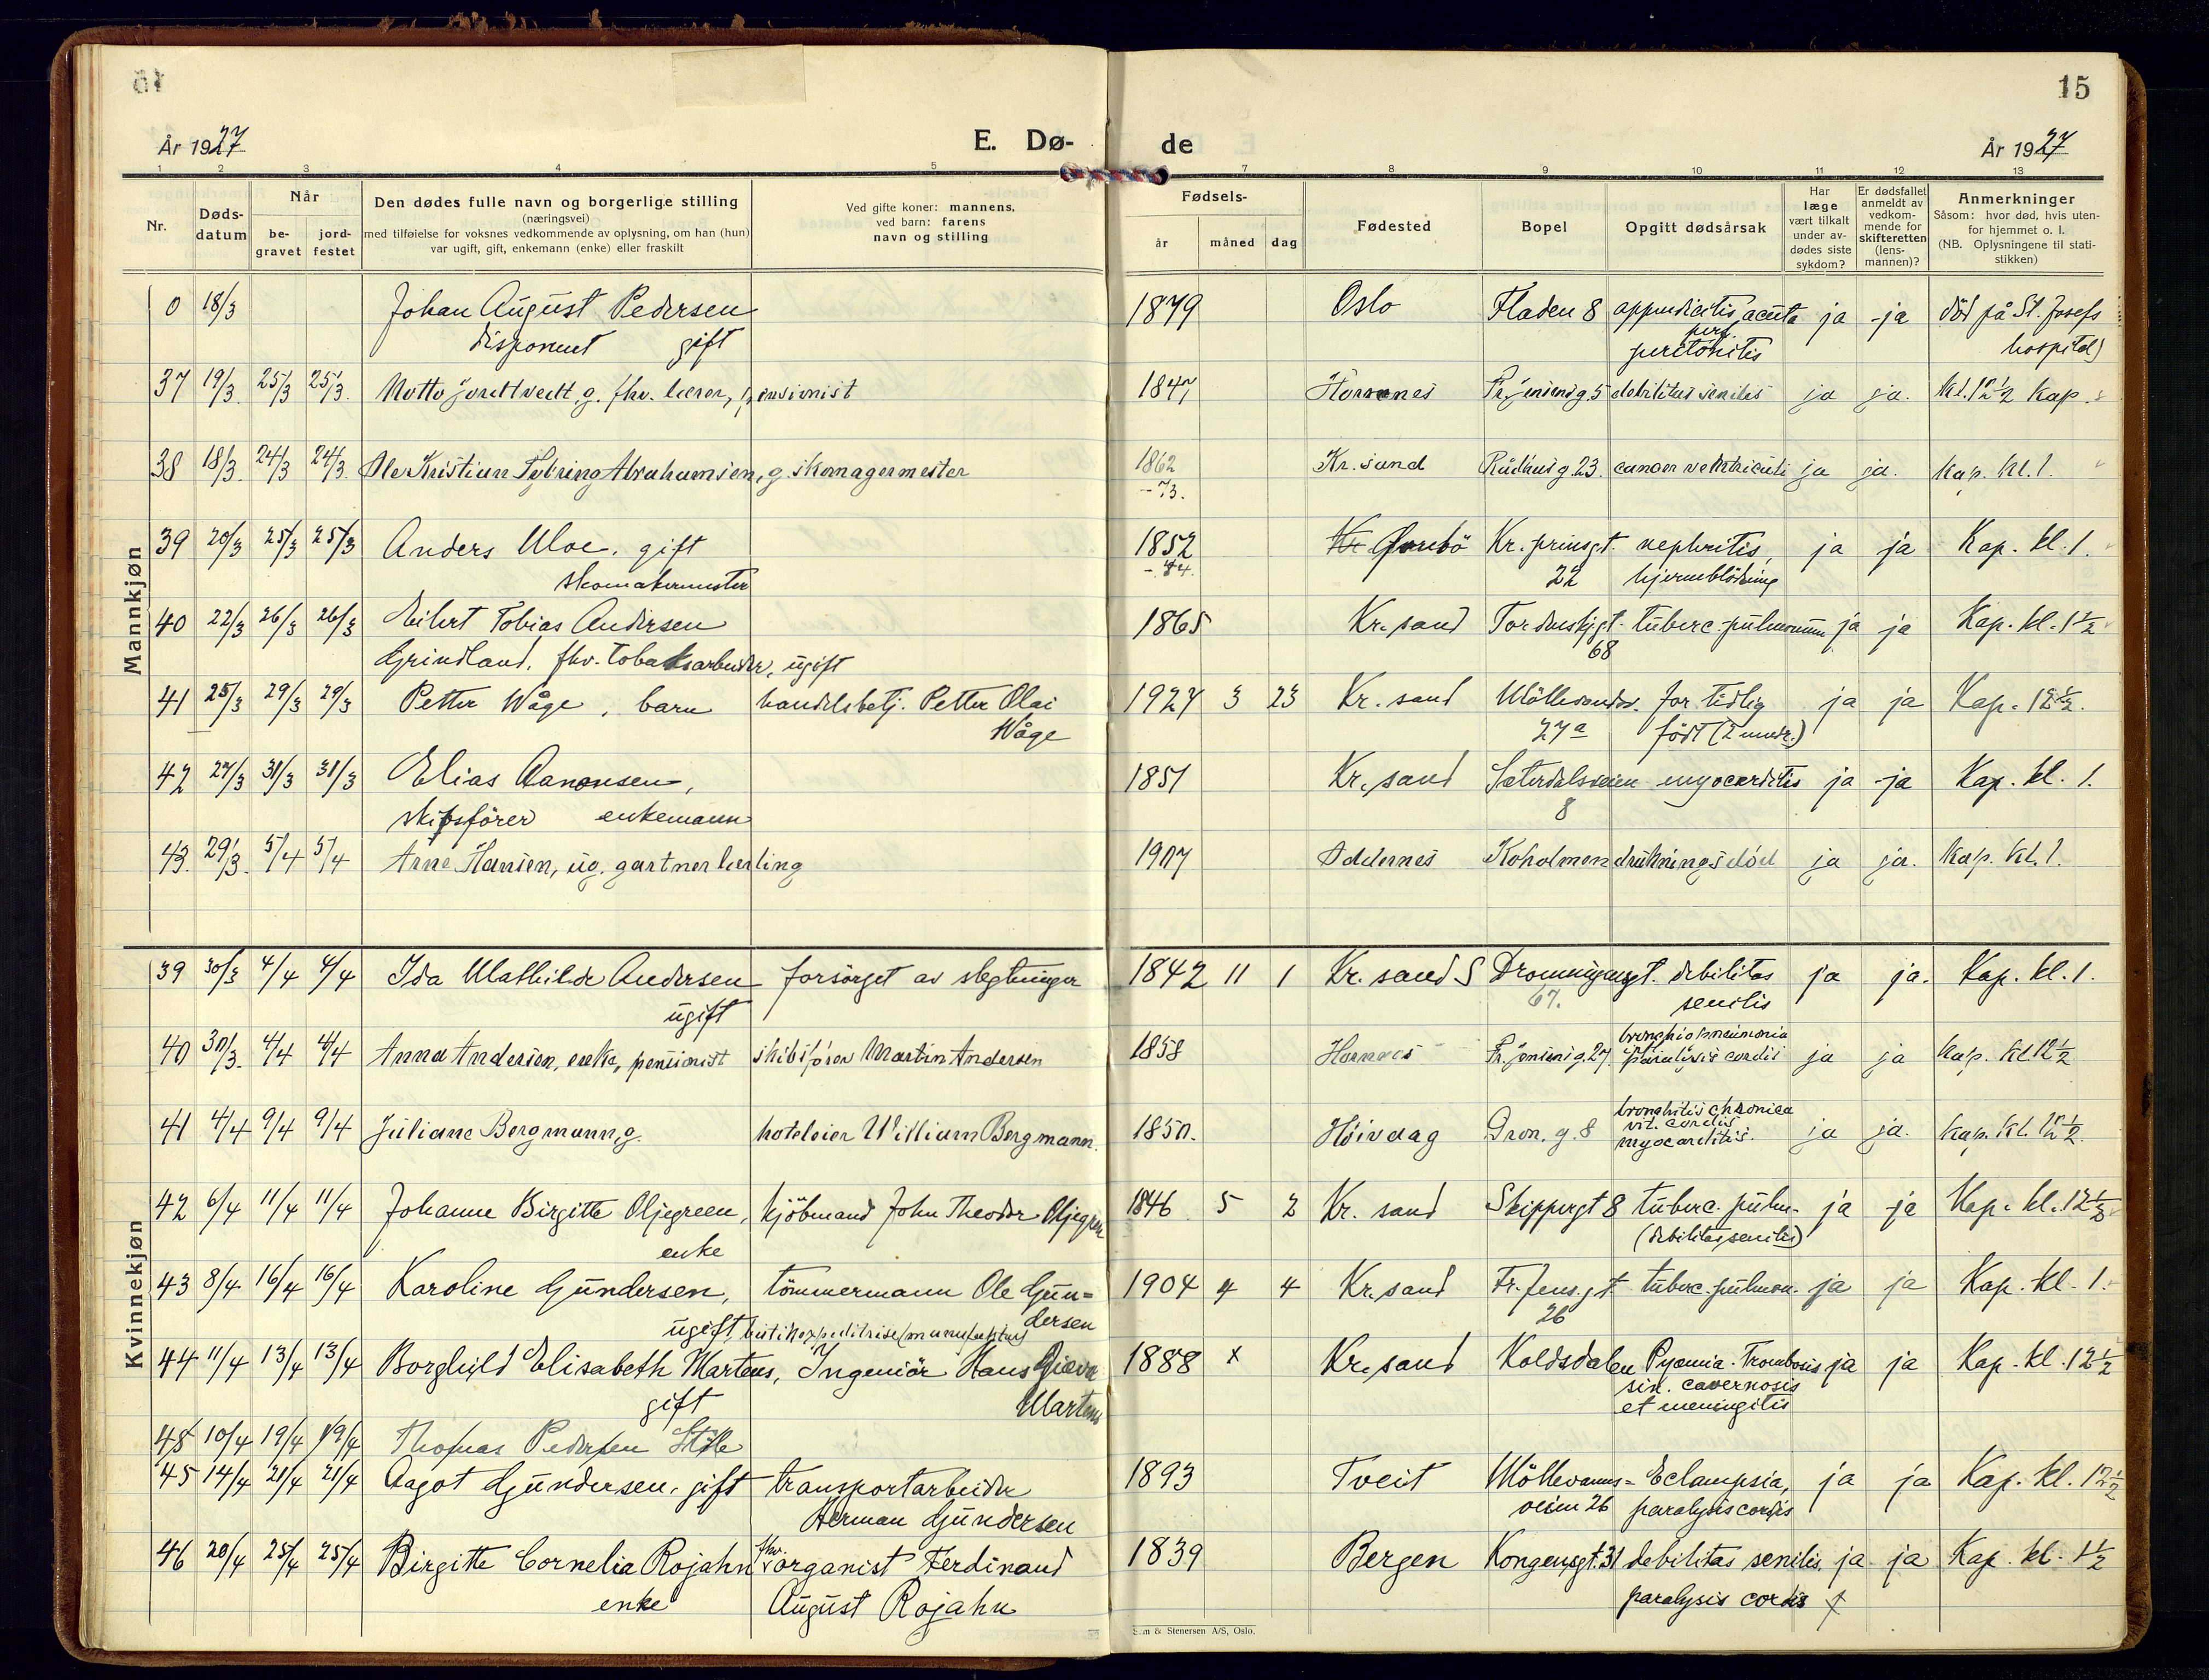 15
År 1927
E. Dø-
de
År 1927
1 2 3 4 5 7 8 9 10 11 12 13
Nr.
Døds-
datum
Når
be-
gravet
jord-
festet
Den dødes fulle navn og borgerlige stilling
(næringsvei)
med tilføielse for voksnes vedkommende av oplysning, om han (hun)
var ugift, gift, enkemann (enke) eller fraskilt
Ved gifte koner: mannens,
ved barn: farens
navn og stilling
Fødsels-
år
måned
dag
Fødested
Bopel
Opgitt dødsårsak
Har
læge
vært tilkalt
under av-
dødes siste
sykdom?
Er dødsfallet
anmeldt av
vedkom-
mende for
skifteretten
(lens-
mannen)?
Anmerkninger
Såsom: hvor død, hvis uten-
for hjemmet o. l.
(NB. Oplysningene til stati-
stikken)
Mannkjøn
0 18/3 Johan August Pedersen 1879 Oslo Fladen 8 appendicitis acuta ja ja död på St. Josefs
disponent gift perf. peritonitis hospital)
37 19/3 25/3 25/3 g. fhv. lærer, pensionist 1847 Hornnes Fr. jensensg. 5 debilitas senilis ja ja. Kl. 12½ Kap.
38 18/3 24/3 24/3 Ole Kristian Abrahamsen, g. skomagermester 1862 Kr. sand Rådhusg. 23. cancer ventriculi ja ja. Kap. Kl. 1.
-73.
39 20/3 25/3 25/3 Anders Moe, gift 1852 Kr. prinsgt. nephritis, ja ja Kap. kl. 1.
skomakermester 22 hjerneblödning
40 22/3 26/3 26/3 Eilert Tobias Andersen 1865 Kr. sand Tordenskjgt. tuberc. pulmonum ja ja Kap. kl. 1½
Grindland, fhv. tobaksarbeider, ugift 68
41 25/3 29/3 29/3 Petter Wåge, barn handelsbetj. Petter Olai 1927 3 23 Kr. sand Möllevandsv. for tidlig ja ja Kap. 12½.
Wåge 27a födt (7 mndr.)
42 27/3 31/3 31/3 Elias Aanonsen, 1851 Kr. sand Sæterdalsveien myocarditis ja ja Kap. kl. 1.
skipsförer enkemann 8
43. 29/3. 5/4 5/4 Arne Hansen, ug. gartnerlærling 1907 Oddernes Koholmen drukningsdöd ja ja. Kap. Kl. 1.
Kvinnekjøn
39 30/3 4/4 4/4 Ida Mathilde Andersen forsörget av slegtninger 1842 11 1 Kr. sand S Dronningensgt. debilitas ja ja. Kap. kl. 1.
ugift 67. senilis
40 30/3. 4/4 4/4 Anna Andersen, enke, pensionist skibsförer Martin Andersen 1858 Hornnes Fr. jensensg. 27. bronchiopneumonia ja ja Kap. Kl. 12½
paralysis cordis
41 4/4 9/4 9/4 Juliane Bergmann, g. hoteleier William Bergmann. 1850. Höivaag Dron. g. 8 bronchitis chronica ja ja. Kap. Kl. 12½.
vit. cordis
myocarditis.
42 6/4 11/4 11/4 Johanne Birgitte Oljegreen, kjöbmand John Theodor Oljegreen 1846 5 2 Kr. sand Skippergt 8 tuberc. pulm. ja ja Kap. kl. 12½
enke (debilitas senilis)
43 8/4 16/4 16/4 Karoline Gundersen, tömmermann Ole Gun= 1904 4 4 Kr. sand Fr. Jens. gt. tuberc. pulmon. ja ja Kap. kl. 1.
dersen 26
ugift, butikexpeditrise (manufaktur)
44 11/4 13/4 13/4 Borghild Elisabeth Martens, Ingeniör Hans 1888 x Kr. sand Koldsdalen Pyæmia. Trombosis ja ja Kap. kl. 12½
gift Martens sin. cavernosis
et meningitis
45 10/4 19/4 19/4 Thomas Pedersen
45 14/4 21/4 21/4 Aagot Gundersen, gift transportarbeider 1893 Tveit Möllevanns= Eclampsia, ja ja Kap. kl. 12½
Herman Gundersen veien 26 paralysis cordis
46 20/4 25/4 25/4 Birgitte Cornelia Rojahn fhv. organist Ferdinand 1839 Bergen Kongensgt. 31 debilitas senilis, ja ja Kap. kl. 1½
enke August Rojahn paralysis cordis
Sem & Stenersen A/S, Oslo.